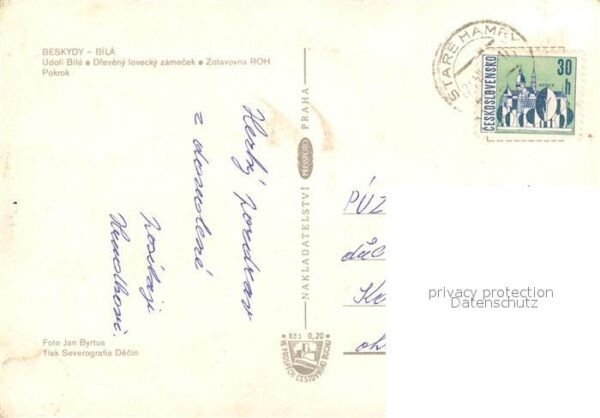 BESKYDY – BÍLÁ
Údolí Bílé ● Dřevěný lovecký zámeček ● Zotavovna ROH
Pokrok
STARÉ HAMRY
ČESKOSLOVENSKO
30
h
Hezký pozdrav
z dovolené
posílají
NAKLADATELSTVÍ PRESSFOTO PRAHA
PÚZ
důl
ok
privacy protection
Datenschutz
Foto Jan Byrtus
Tisk Severografia Děčín
* Kčs 0,20 *
VE PROSPĚCH CESTOVNÍHO RUCHU